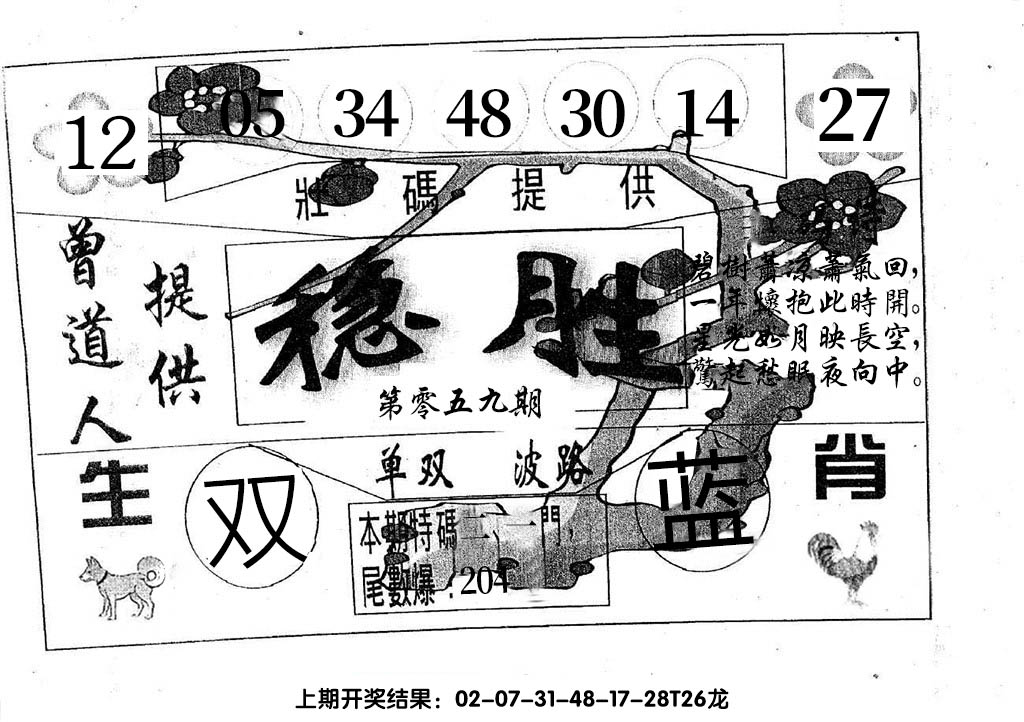 12 05 34 48 30 14 27
壯碼提供
曾道人
提供
稳胜
第零五九期
碧樹蕭涼蕭氣回，
一年懷抱此時開。
星光如月映長空，
驚起愁眠夜向中。
单双 波路
生肖
双
蓝
本期特碼二、一門，
尾數爆：204
上期开奖结果：02-07-31-48-17-28T26龙